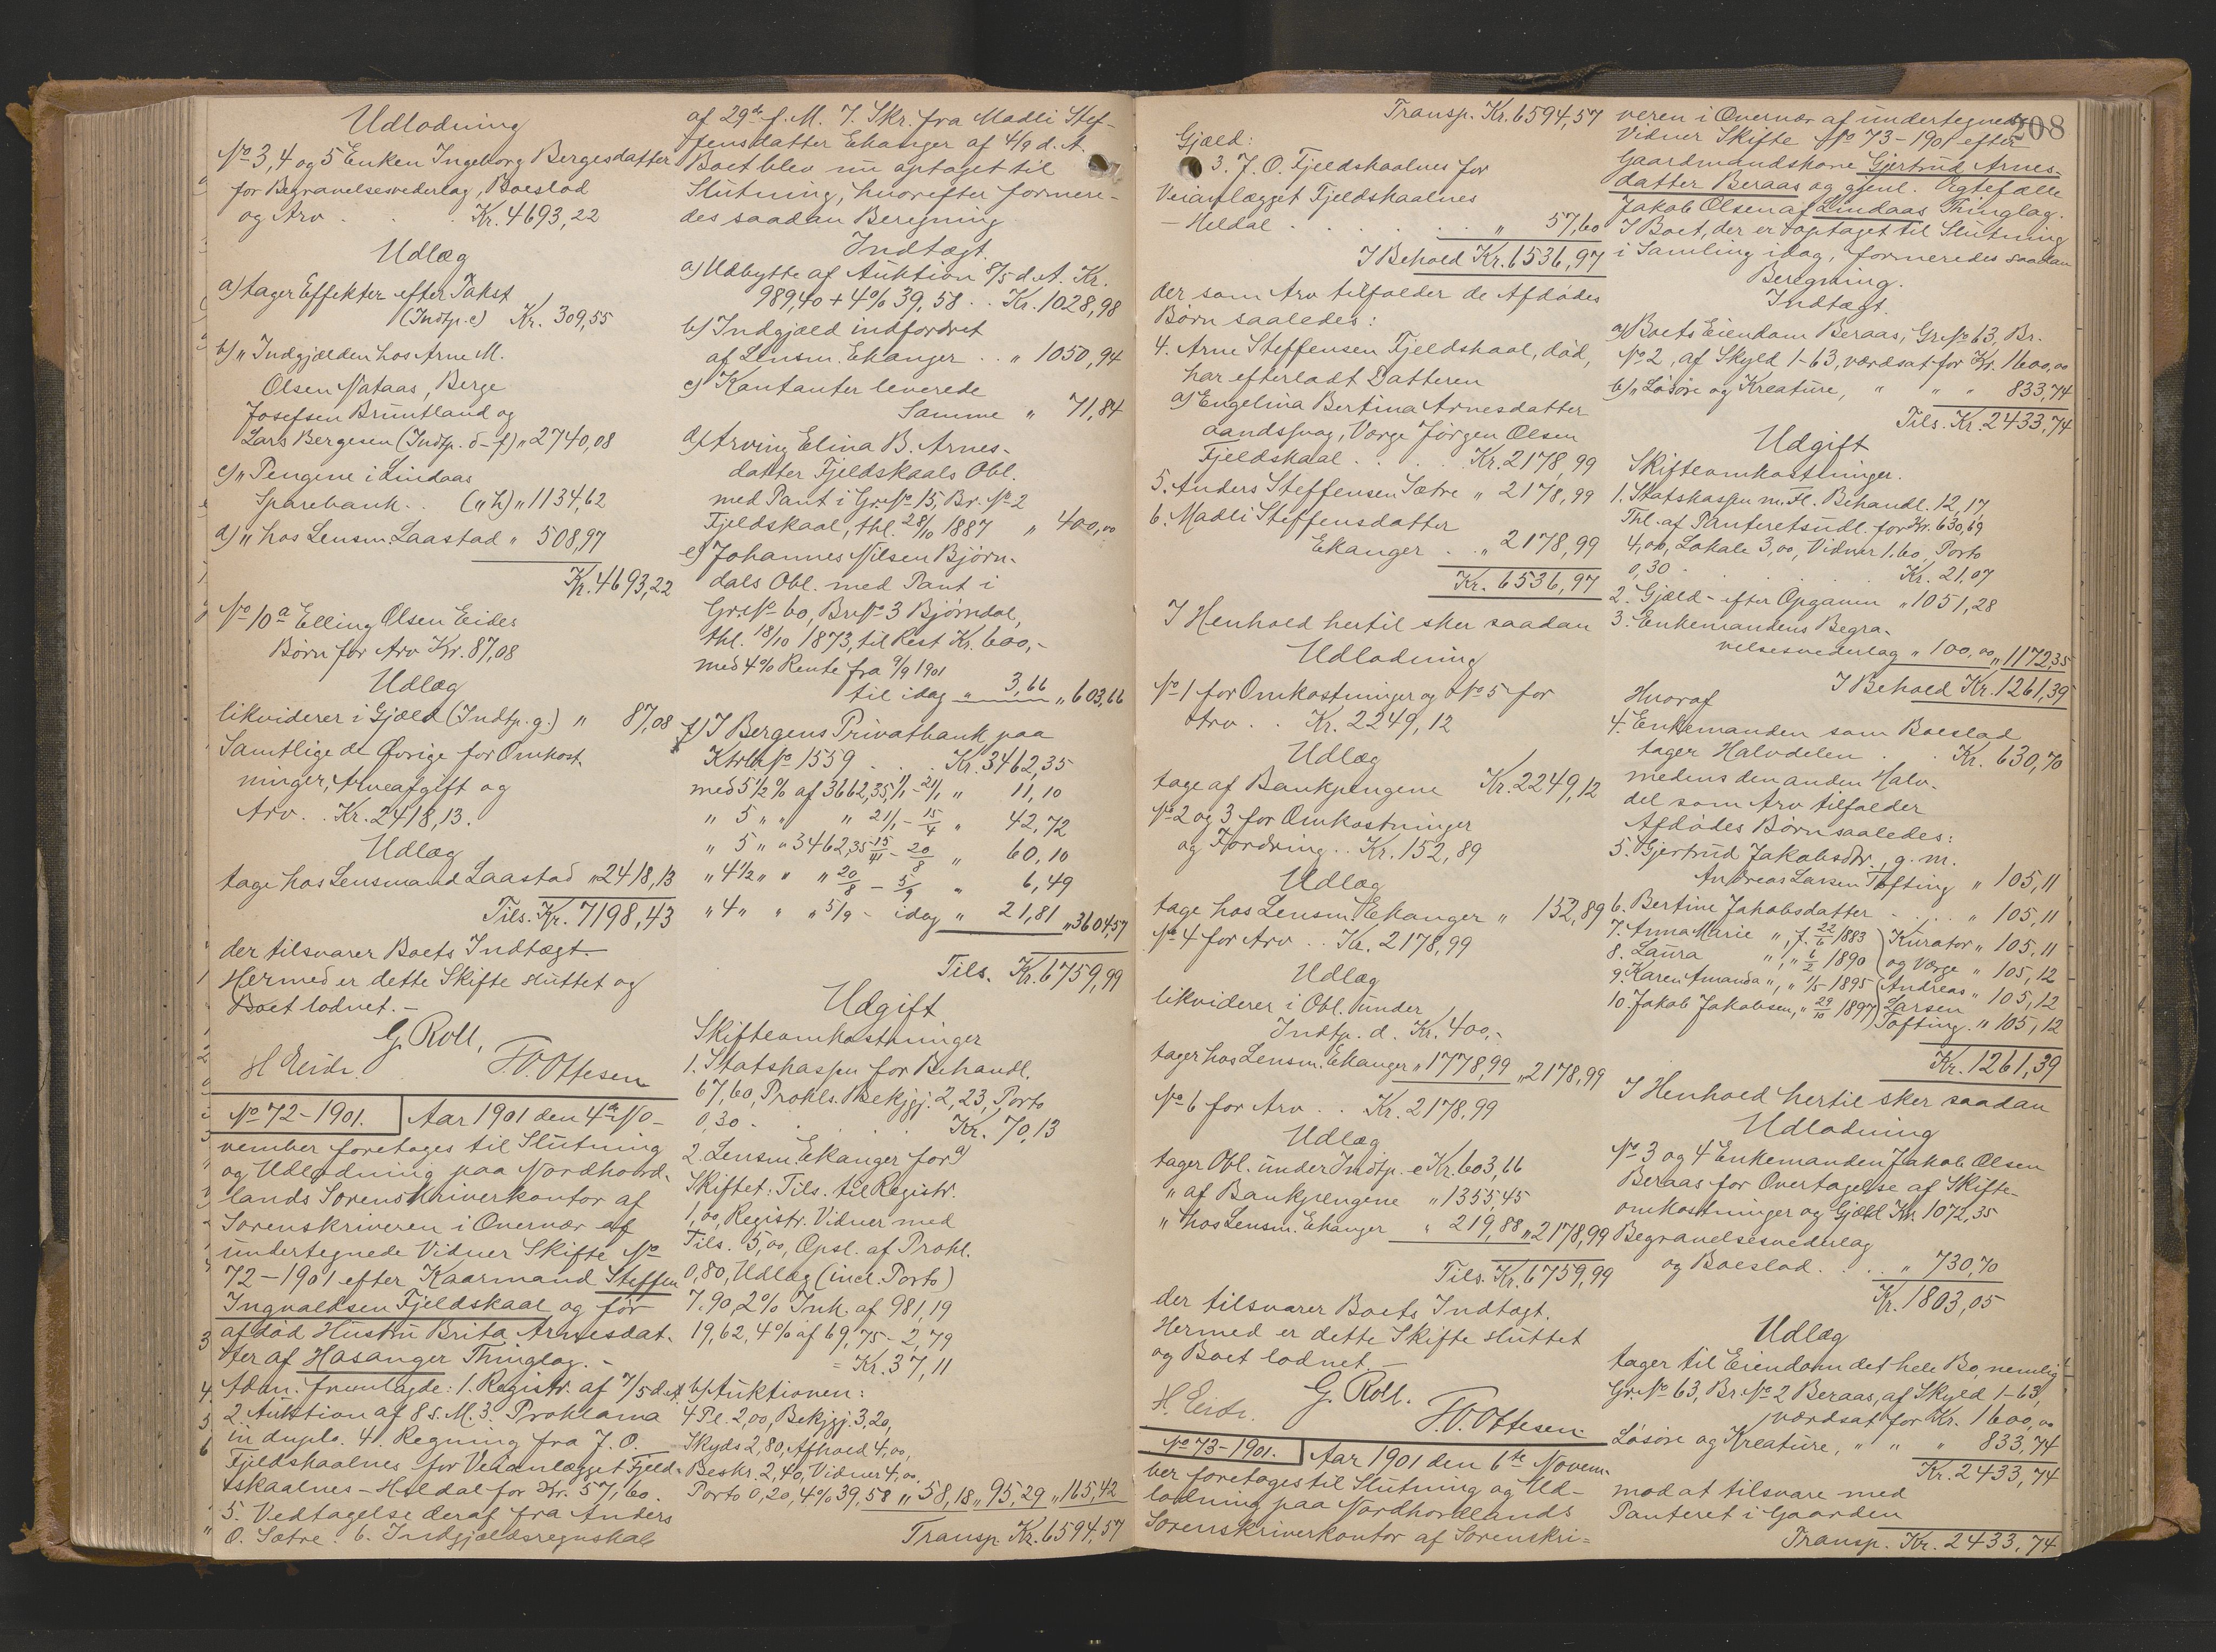 Udlodning
No 3, 4 og 5 Enken Ingeborg Bergesdatter
for Begravelsesvederlag, Boeslod
og Arv . . . Kr. 4693,22
Udlæg
a) tager Effekter efter Takst
(Indtp. c) Kr. 309,55
b) " Indgjælden hos Arne M.
Olsen Nataas, Berge
Josefsen Bruntland og
Lars Bergesen (Indtp. d-f) " 2740,08
c) " Pengene i Lindaas
Sparebank . . (" h) " 1134,62
d) " hos Lensm. Laastad " 508,97
Kr. 4693,22
No 10a Elling Olsen Eides
Børn for Arv Kr. 87,08
Udlæg
likviderer i Gjæld (Indtp. g.) " 87,08
Samtlige de Øvrige for Omkost-
ninger, Arveafgift og
Arv . . Kr. 2418,13.
Udlæg
tage hos Lensmand Laastad " 2418,13
Tils. Kr. 7198,43
der tilsvarer Boets Indtægt.
Hermed er dette Skifte sluttet og
Boet lodnet. -
G. Roll,
H Eide. T.O. Ottesen
No 72-1901. Aar 1901 den 4de No-
vember foretoges til Slutning
og Udlodning paa Nordhord-
lands Sorenskriverkontor af
Sorenskriveren i Overvær af
undertegnede Vidner Skifte No
72-1901 efter Kaarmand Steffen
Ingvaldsen Fjeldskaal og før
afdød Hustru Brita Arnesdat-
ter af Hosanger Thinglag. -
Adm. fremlagde: 1. Registr. af 7/5 d. A.
2 Auktion af 8 s. M. 3. Proklama
in duplo. 4. Regning fra J. O.
Fjeldskaalnes for Veianlægget Fjeld-
skaalnes-Heldal for Kr. 57,60.
5. Vedtagelse deraf fra Anders
O. Sætre. 6. Indgjældsregnskab
af 29de f. M. 7. Skr. fra Madli Stef-
fensdatter Ekanger af 4/9 d. A.
Boet blev nu optaget til
Slutning, hvorefter formere-
des saadan Beregning
Indtægt.
a) Udbytte af Auktion 8/5 d. A. Kr.
989,40 + 4% 39,58 . . Kr. 1028,98
b) Indgjæld indfordret
af Lensm. Ekanger . . " 1050,94
c) Kontanter leverede
Samme " 71,84
d) Arving Elina B. Arnes-
datter Fjeldskaals Obl.
med Pant i Gr. No 15, Br. No 2
Fjeldskaal, thl. 28/10 1887 " 400,00
e) Johannes Nilsen Bjørn-
dals Obl. med Pant i
Gr. No 60, Br. No 3 Bjørndal,
thl. 18/10 1873, til Rest Kr. 600,-
med 4% Rente fra 9/9 1901
til idag " 3,66 " 603,66
f) I Bergens Privatbank paa
Ktrb. No 1559 . . . Kr. 3462,35
med 5 1/2 % af 3662,35 1/1 - 21/1 " 11,10
" 5 " " " 21/1 - 15/4 " 42,72
" 5 " " 3462,35 15/4 - 20/8 " 60,10
" 4 1/2 " " " 20/8 - 5/9 " 6,49
" 4 " " " 5/9 - idag " 21,81 " 3604,57
Tils. Kr. 6759,99
Udgift
Skifteomkostninger
1. Statskassen for Behandl.
67,60, Prokls. Bekjgj. 2,23, Porto
0,30 . . . . Kr. 70,13
2. Lensm. Ekanger for a)
Skiftet: Tils. til Registr.
1,00, Registr. Vidner med
Tils. 5,00, Opsl. af Prokl.
0,80, Udlæg (incl. Porto)
7.90, 2% Ink. af 981,19
19,62, 4% af 69,75 - 2,79
= Kr. 37,11
b) Auktionen:
4 Pl. 2,00, Bekjgj. 3,20,
Skyds 2,80, Afhold 4,00,
Beskr. 2,40, Vidner 4,00,
Porto 0,20, 4% 39,58 " 58,18 " 95,29 " 165,42
Transp. Kr. 6594,57
208
Transp. Kr. 6594,57
Gjæld:
3. J. O. Fjeldskaalnes for
Veianlægget Fjeldskaalnes
- Heldal . . . . . " 57,60
I Behold Kr. 6536,97
der som Arv tilfalder de Afdødes
Børn saaledes:
4. Arne Steffensen Fjeldskaal, død,
har efterladt Datteren
a) Engelina Bertina Arnesdatter
aandssvag, Værge Jørgen Olsen
Fjeldskaal . . . . Kr. 2178,99
5. Anders Steffensen Sætre " 2178,99
6. Madli Steffensdatter
Ekanger . . " 2178,99
Kr. 6536,97
I Henhold hertil sker saadan
Udlodning
No 1 for Omkostninger og No 5 for
Arv . . Kr. 2249,12
Udlæg
tage af Bankpengene Kr. 2249,12
No 2 og 3 for Omkostninger
og Fordring . . Kr. 152,89
Udlæg
tage hos Lensm. Ekanger " 152,89
No 4 for Arv . . Kr. 2178,99
Udlæg
likviderer i Obl. under
Indtp. d. Kr. 400,-
tager hos Lensm. Ekanger " 1778,99 " 2178,99
No 6 for Arv . . Kr. 2178.99
Udlæg
tager Obl. under Indtp. e Kr. 603,66
" af Bankpengene " 1355,45
" hos Lensm. Ekanger " 219,88 " 2178,99
Tils. Kr. 6759,99
der tilsvarer Boets Indtægt.
Hermed er dette Skifte sluttet
og Boet lodnet. -
H. Eide. G. Roll. T.O. Ottesen.
No 73-1901. Aar 1901 den 6te Novem-
ber foretoges til Slutning og Ud-
lodning paa Nordhordlands
Sorenskriverkontor af Sorenskri-
veren i Overvær af undertegnede
Vidner Skifte No 73-1901 efter
Gaardmandskone Gjertrud Arnes-
datter Beraas og gjenl. Ægtefælle
Jakob Olsen af Lindaas Thinglag.
I Boet, der er optaget til Slutning
i Samling idag, formeredes saadan
Beregning.
Indtægt.
a) Boets Eiendom Beraas, Gr. No 63, Br.
No 2, af Skyld 1-63, værdsat for Kr. 1600,00
b) " Løsøre og Kreature, " " " 833,74
Tils. Kr. 2433,74
Udgift
Skifteomkostninger.
1. Statskassen m. Fl. Behandl. 12,17,
Thl. af Panteretsudl. for Kr. 630,69
4,00, Lokale 3,00, Vidner 1.60, Porto
0,30 . . . . Kr. 21,07
2. Gjæld - efter Opgaven " 1051,28
3. Enkemandens Begra-
velsesvederlag " 100,00 " 1172,35
I Behold Kr. 1261,39
Hvoraf
4. Enkemanden som Boeslod
tager Halvdelen . . Kr. 630,70
medens den anden Halv-
del som Arv tilfalder
Afdødes Børn saaledes:
5. Gjertrud Jakobsdtr., g. m.
Andreas Larsen Tofting " 105,11
6. Bertine Jakobsdatter . . . . " 105,11
7. Anna Marie ", f. 22/6 1883 Kurator " 105,11
8. Laura ", " 6/2 1890 og Værge " 105,12
9. Karen Amanda ", " 1/5 1895 Andreas " 105,12
10. Jakob Jakobsen, " 29/10 1897 Larsen
Tofting. " 105,12
Kr. 1261,39
I Henhold hertil sker saadan
Udlodning
No 3 og 4 Enkemanden Jakob Olsen
Beraas for Overtagelse af Skifte-
omkostninger og Gjæld Kr. 1072,35
Begravelsesvederlag
og Boeslod . . . . " 730,70
Kr. 1803,05
Udlæg
tager til Eiendom det hele Bo, nemlig
Gr. No 63, Br. No 2 Beraas, af Skyld 1-63,
værdsat for Kr. 1600,00
Løsøre og Kreature, " " " 833,74
Kr. 2433,74
mod at tilsvare med
Panteret i Gaarden
Transp. Kr. 2433,74